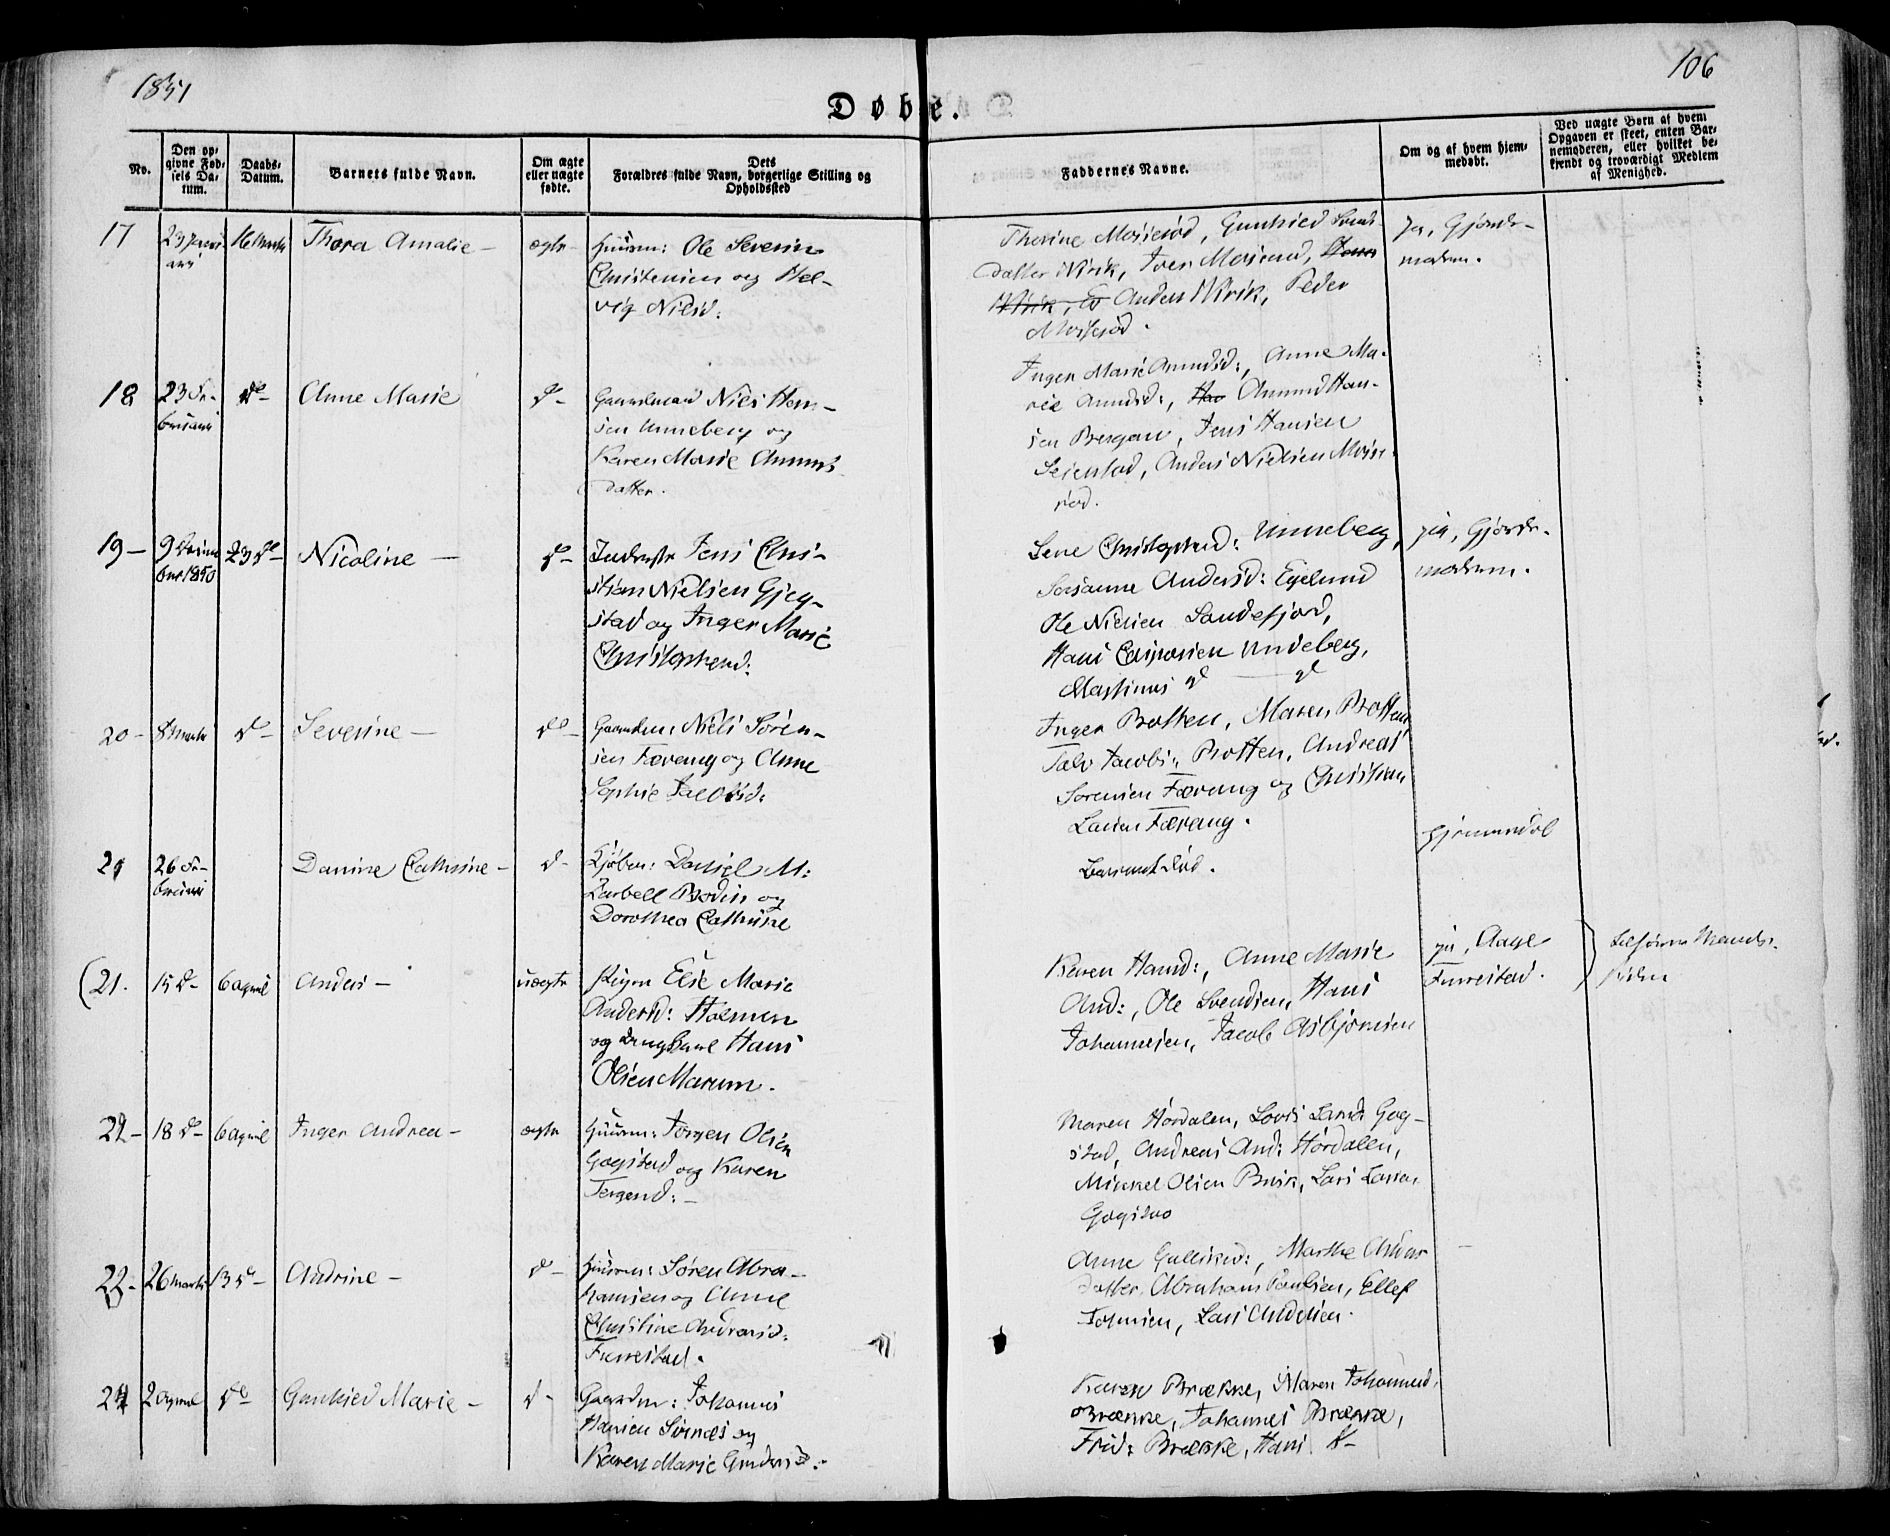 1851
106
Døbe.
No.
Den op-
givne Fød-
sels Da-
tum.
Daabs-
Datum.
Barnets fulde Navn.
Om ægte
eller uægte
fødte.
Dets
Forældres fulde Navn, borgerlige Stilling og
Opholdssted
Faddernes Navne.
Om og af hvem hjem-
medøbt.
Ved uægte Børn af hvem
Opgaven er skeet, enten Bar-
nemoderen, eller hvilket be-
kjendt og troværdigt Medlem
af Menighed.
17
23 Janu
ari
16 Marts
Thora Amalie -
ægte -
Huusm: Ole Severin
Christensen og Hel-
vig Nilsd:
Thorine Moiserød, Gunhild
datter Virik, Iver
Virik, Anders Virik, Peder
Moiserød.
Ja, Gjorde-
modern.
18
23 Fe-
bruari
do -
Anne Marie
do -
Gaardmand Niels Han-
sen Unneberg og
Karen Marie Amunds
datter.
Inger Marie Amundsd:, Anne Ma-
rie Amundsd:, Amund Han-
sen Bergan, Jens Hansen
Seierstad, Anders Nielsen Moise-
rød.
19 -
9 Decem
ber 1850
23 do -
Nicoline -
do -
Inderste Jens Chri-
stian Nielsen Gjeg-
stad og Inger Marie
Christophersd:
Lene Christophersd: Unneberg,
Susanne Andersd: Egelund
Ole Nielsen Sandefjord,
Hans Caspersen Unneberg,
Martinus do - do
ja, Gjorde-
modern.
20 -
8 Marts
do -
Severine -
do -
Gaardm: Niels Søren-
sen Færvang og Anne
Sophie Jacobsd:
Inger Rotten, Maren Rotten
Jacobs: Rotten, Andreas
Sørensen Færvang og Christian
Larsen Færvang.
21
26 Fe-
bruari
Danine Cathrine -
do -
Kjøbm: Daniel M:
Zarbell Bodin og
Dorothea Cathrine
(21.
15 do -
6 April
Anders -
uægte
Pigen Else Marie
Andersd: Holmen
og Ungkarl Hans
Olsen Marum.
Karen Hansd:, Anne Marie
And:, Ole Svendsen, Hans
Johannesen, Jacob Asbjørnsen
ja, Aage
Furrestad.
22 -
18 do -
6 April
Inger Andrea -
ægte
Huusm: Jørgen Olsen
Gogstad og Karen
Jørgensd: -
Maren Hørdalen, Lovis Gog-
stad, Andreas And: Hørdalen,
Mikkel Olsen Virik, Lars Larsen
Gogstad
23 -
26 Marts
13 do -
Andrine -
do -
Huusm: Søren Abra-
hamsen og Anne
Christine Andersd:
Furrestad.
Anne Gulliksd:, Marthe Anders
datter, Abraham Paulsen, Ellef
Johnsen, Lars Andersen.
24
2 April
do
Gunhild Marie -
do -
Gaardm: Johannes
Hansen Svines og
Karen Marie Gundersd: -
Karen Brække, Maren Johannesd.
Brække, Johannes Brække,
Frid: Brække, Hans B-